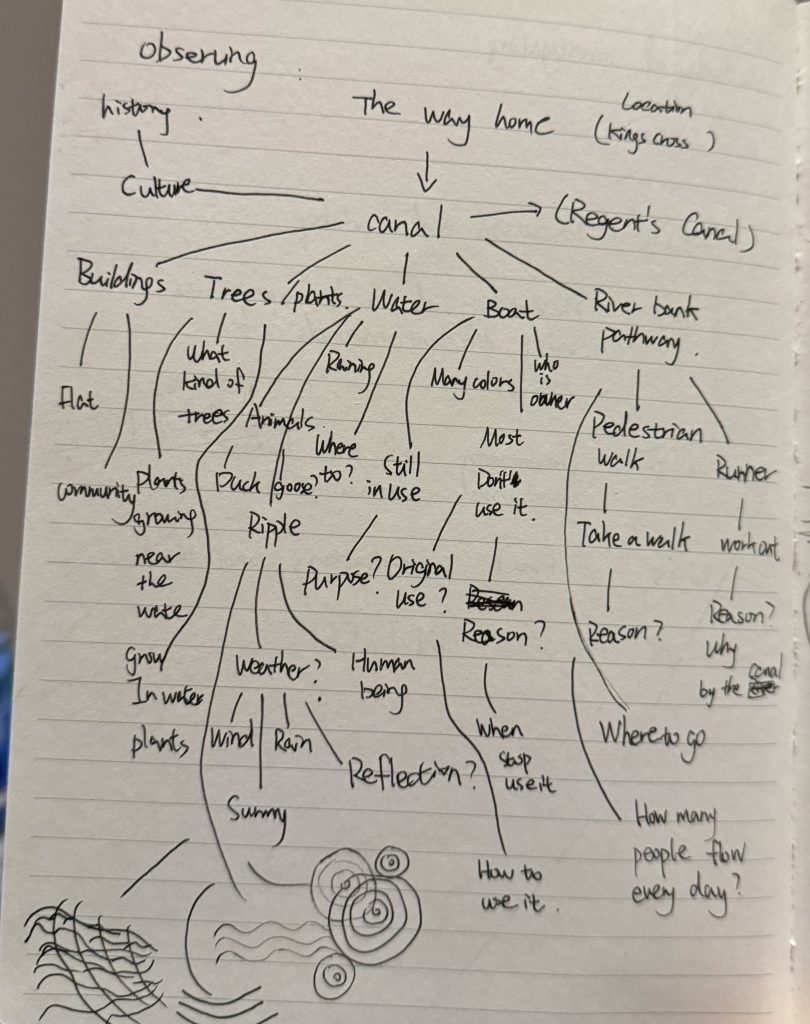 obserung
history .
The way home
Location
(Kings cross)
Culture
canal
(Regent's Canal)
Buildings
Trees /plants.
Water
Boat
River bank
pathway.
Flat
community
What
kind of
trees
plants
growing
near
the
wate
grow
In water
plants
Animals.
Duck
goose?
Raining
Where
to?
Ripple
Weather?
Wind
Sunny
Rain
Reflection?
Human
being
Still
in use
Purpose?
Original
use?
Many colors
who
is
owner
Most
Don't
use it.
Reason?
When
stop
use it
How to
use it.
Pedestrian
walk
Take a walk
Reason?
Runner
workout
Reason?
Why
by the canal
Where to go
How many
people flow
every day?